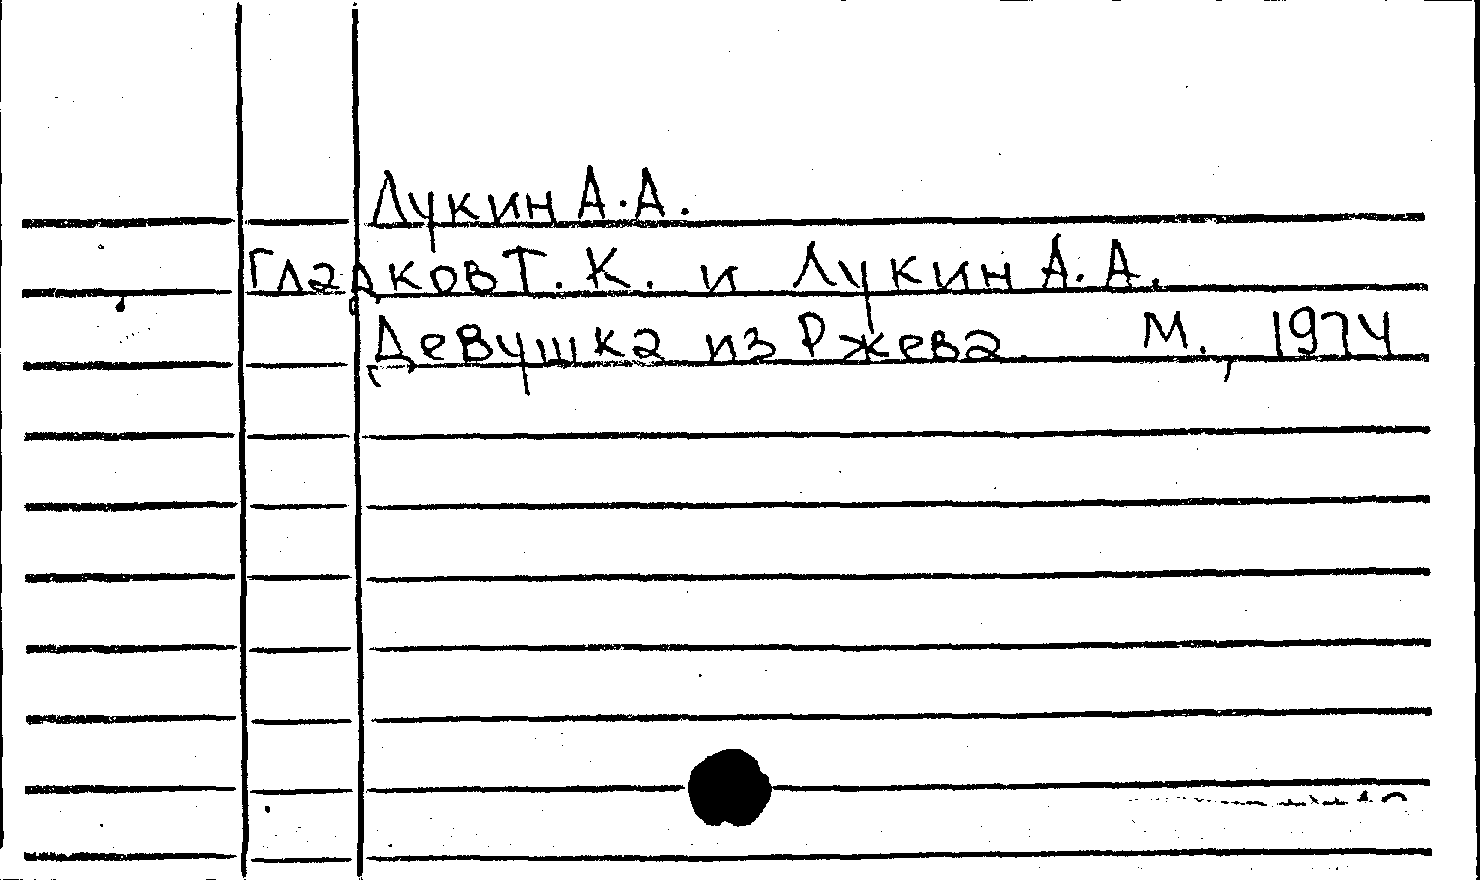 Лукин А.А.
Гладков Т.К. и Лукин А.А.
Девушка из Ржева М., 1974